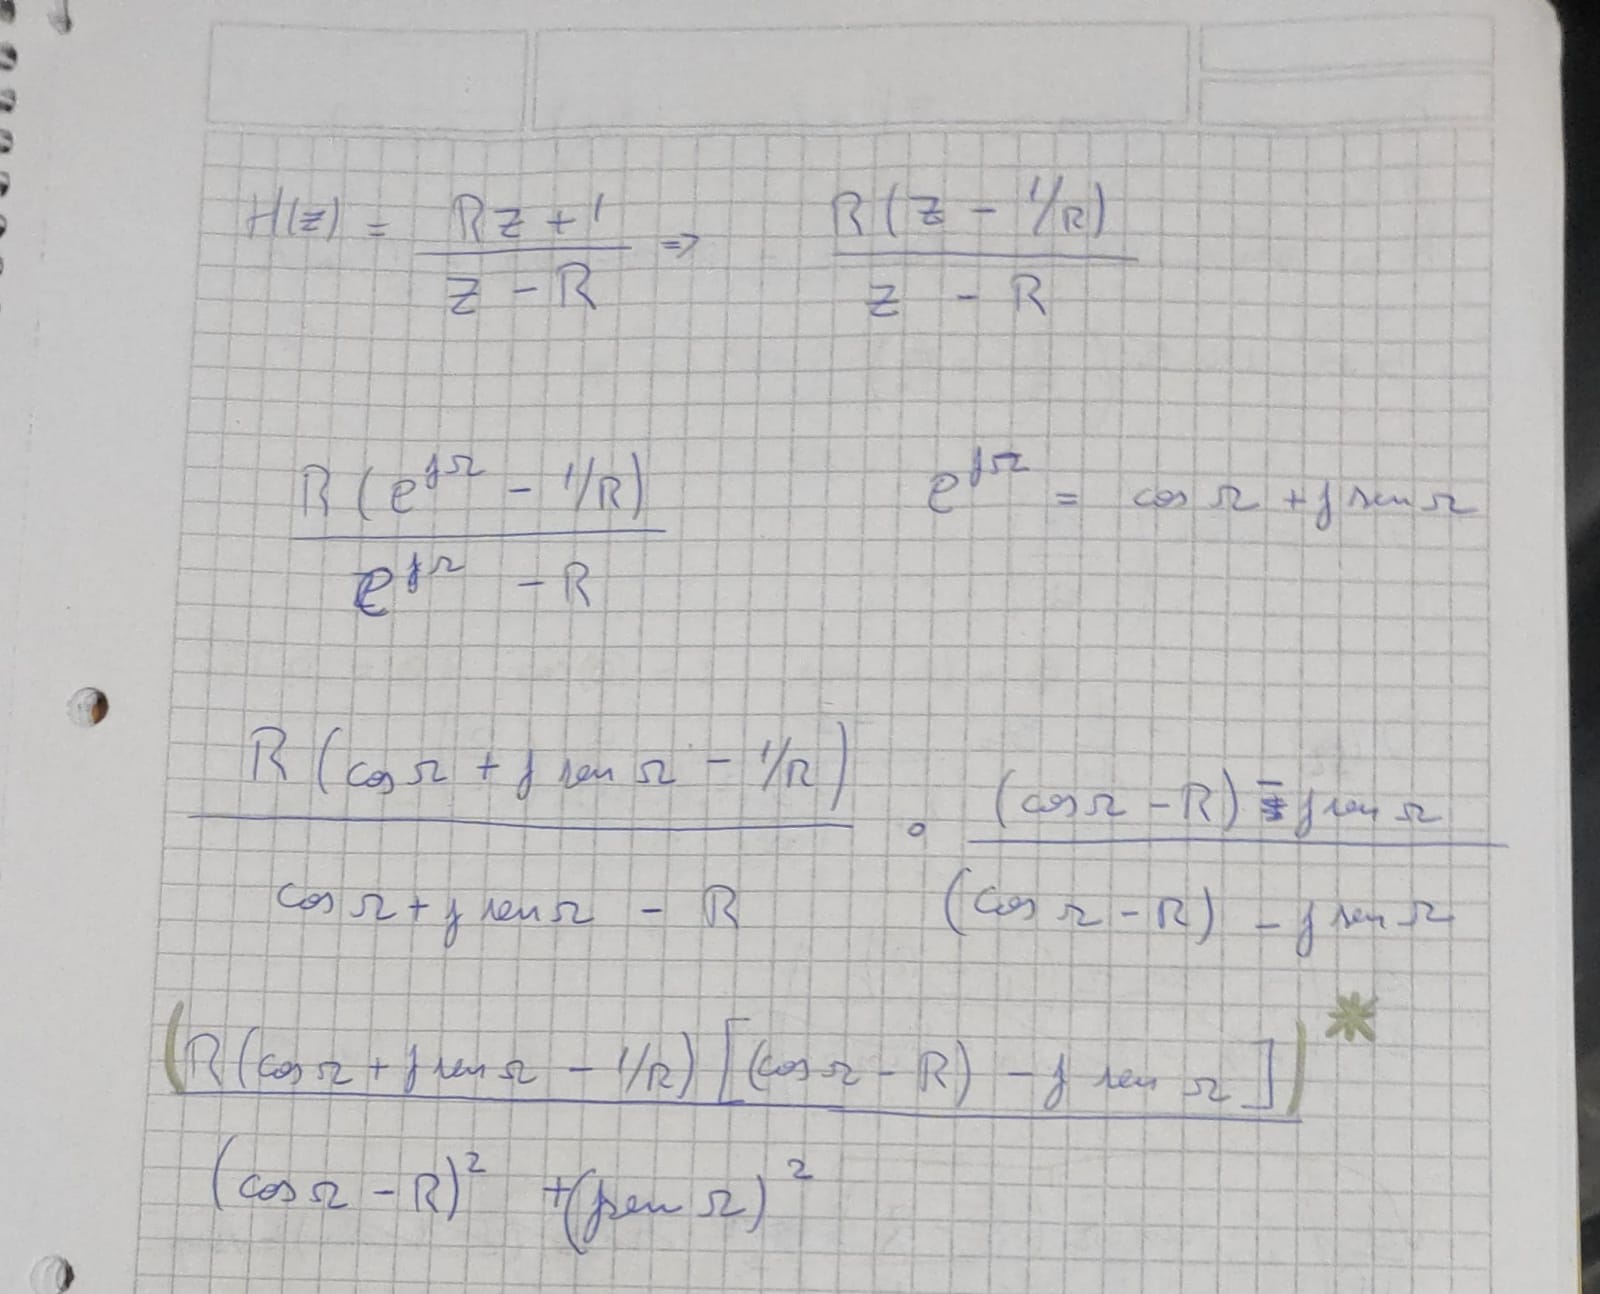 H(z) = (Rz + 1)/(z - R) => R(z - 1/R)/(z - R)
R(e^{jΩ} - 1/R)/(e^{jΩ} - R)    e^{jΩ} = cos Ω + j sen Ω
R(cos Ω + j sen Ω - 1/R)/(cos Ω + j sen Ω - R) · ((cos Ω - R) - j sen Ω)/((cos Ω - R) - j sen Ω)
(R(cos Ω + j sen Ω - 1/R)[(cos Ω - R) - j sen Ω])*
(cos Ω - R)² + (j sen Ω)²